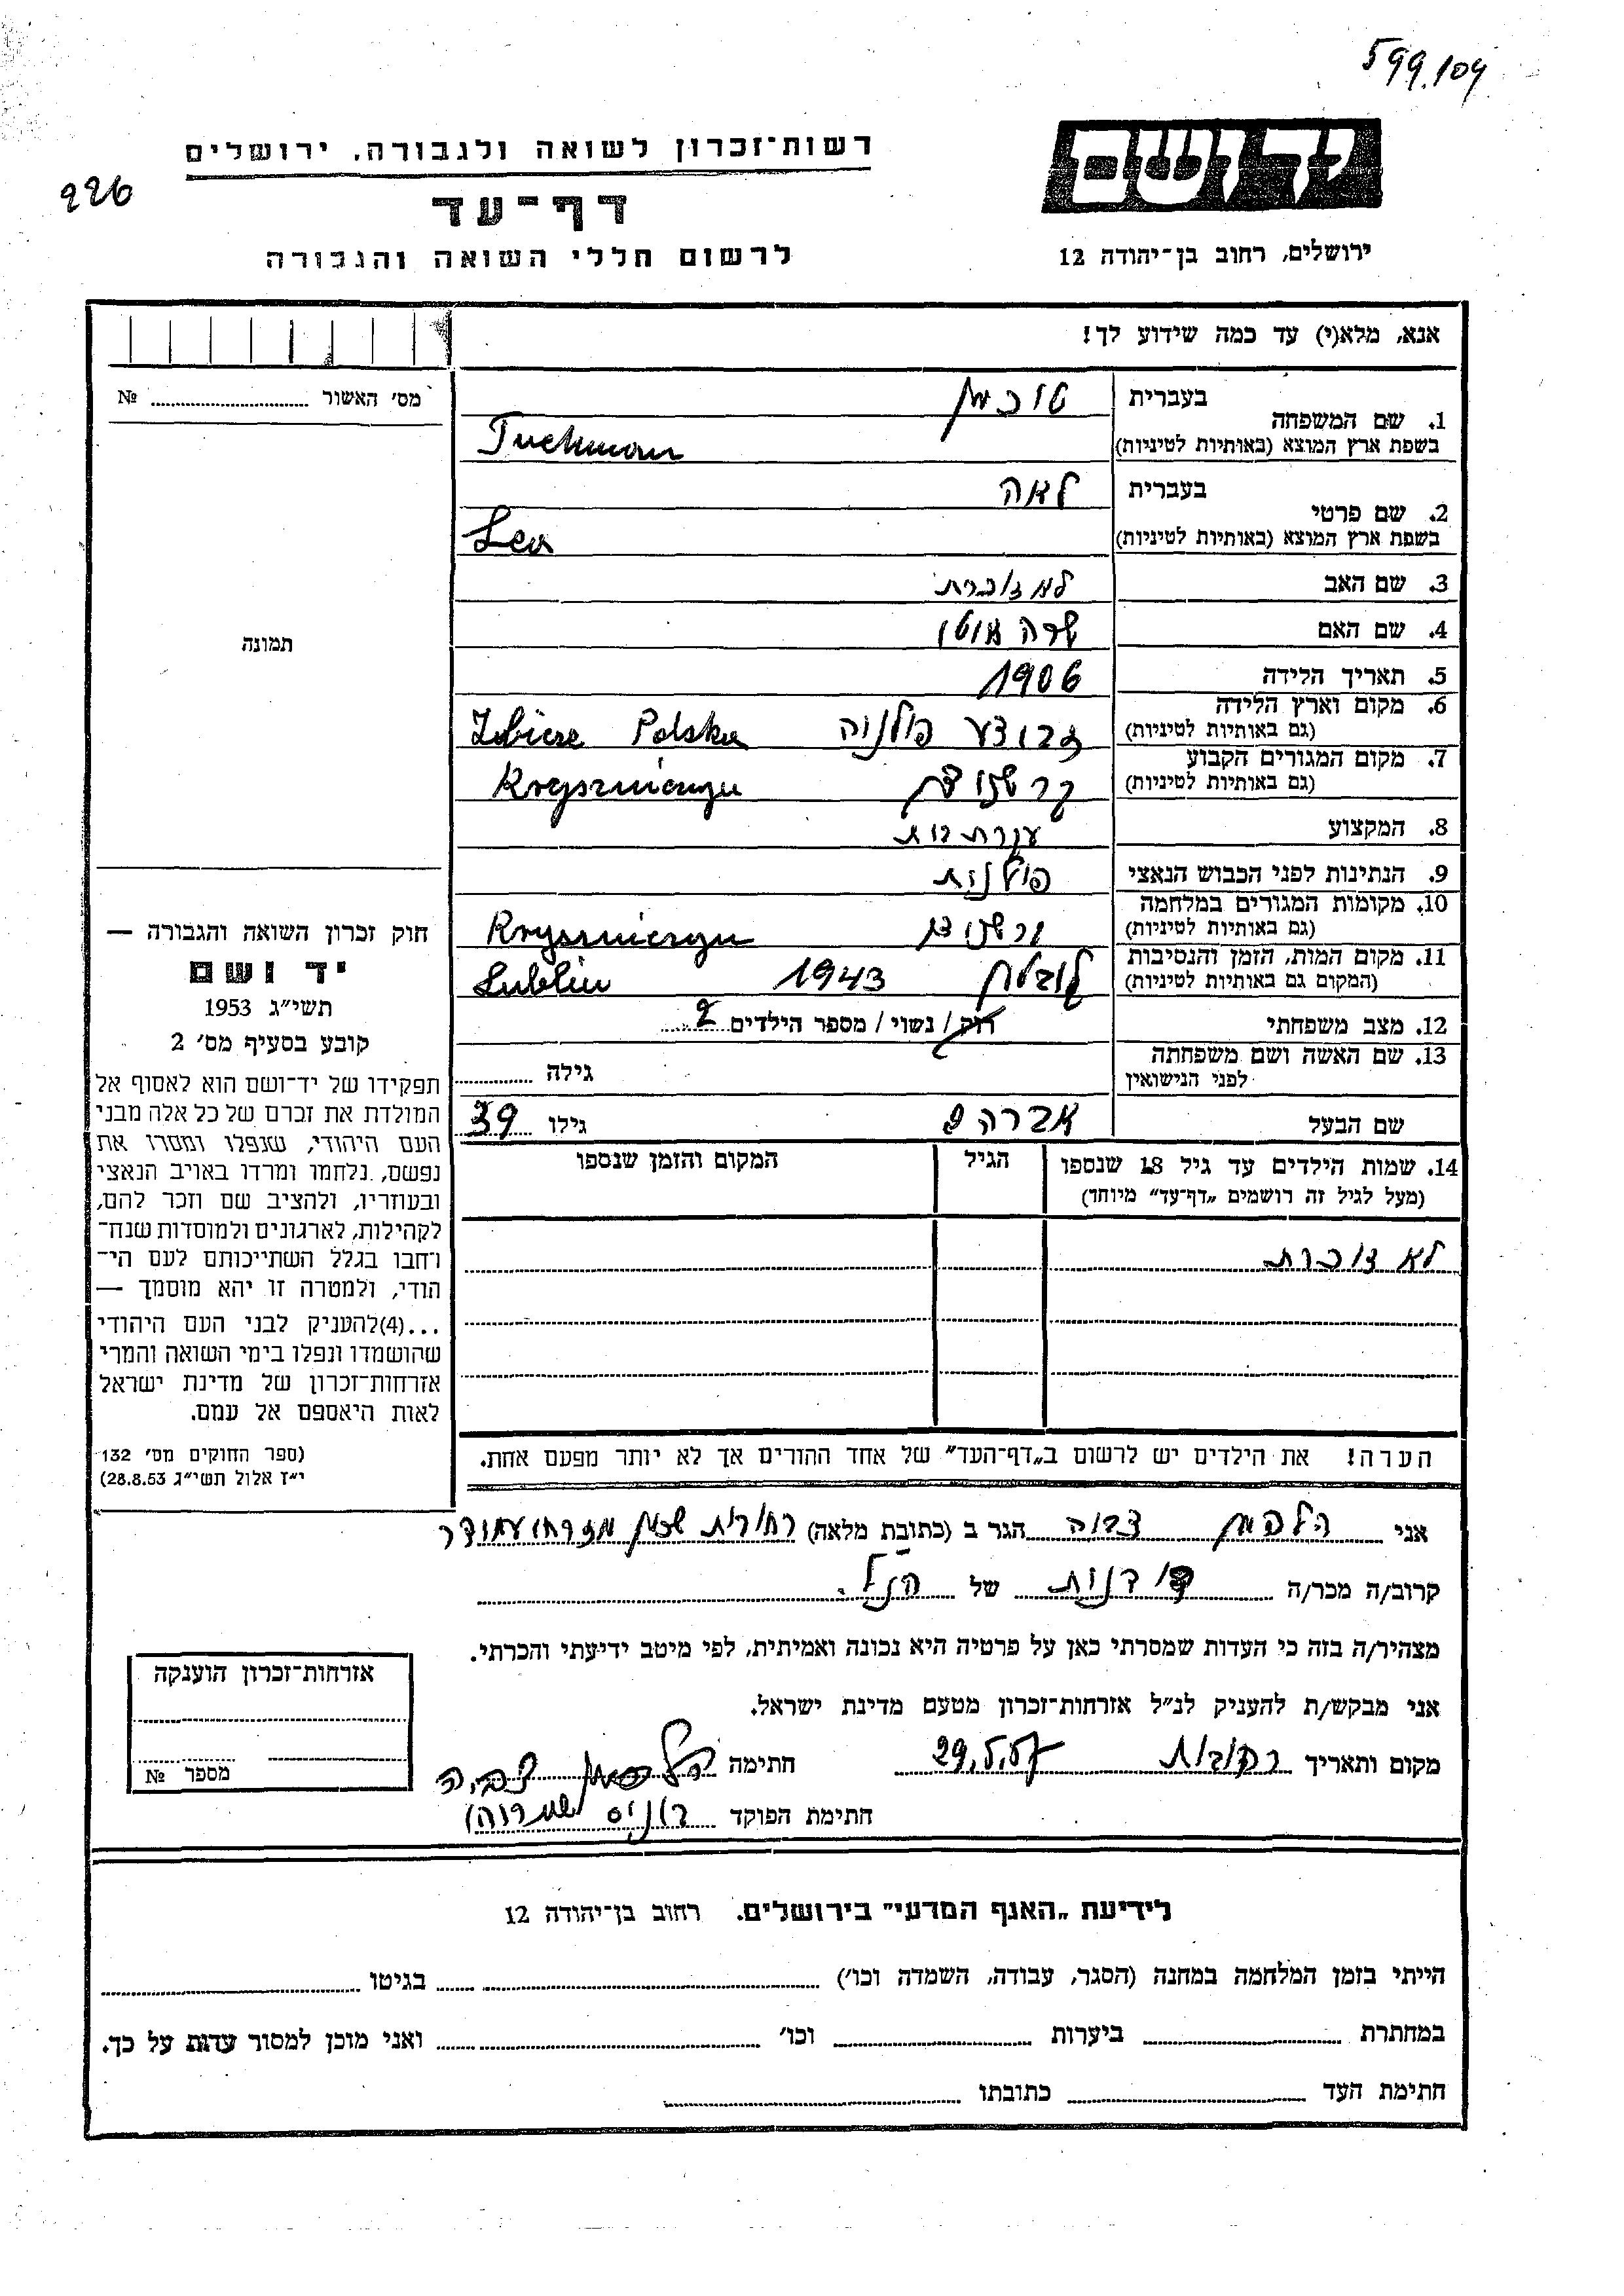 599.104
226
רשות־זכרון לשואה ולגבורה, ירושלים
דף־עד
לרשום חללי השואה והגבורה
יד ושם
ירושלים, רחוב בן־יהודה 12
אנא, מלא(י) עד כמה שידוע לך!
מס׳ האשור ........ №
תמונה
חוק זכרון השואה והגבורה —
יד ושם
תשי״ג 1953
קובע בסעיף מס׳ 2
תפקידו של יד־ושם הוא לאסוף אל
המולדת את זכרם של כל אלה מבני
העם היהודי, שנפלו ומסרו את
נפשם, נלחמו ומרדו באויב הנאצי
ובעוזריו, ולהציב שם וזכר להם,
לקהילות, לארגונים ולמוסדות שנח־
רחבו בגלל השתייכותם לעם הי־
הודי, ולמטרה זו יהא מוסמך —
...(4)להעניק לבני העם היהודי
שהושמדו ונפלו בימי השואה והמרי
אזרחות־זכרון של מדינת ישראל
לאות היאספם אל עמם.
(ספר החוקים מס׳ 132
י״ז אלול תשי״ג 28.8.53)
1. שם המשפחה בעברית טוכמן
בשפת ארץ המוצא (באותיות לטיניות) Tuchman
2. שם פרטי בעברית לאה
בשפת ארץ המוצא (באותיות לטיניות) Lea
3. שם האב לא זוכרת
4. שם האם שרה
5. תאריך הלידה 1906
6. מקום וארץ הלידה
(גם באותיות לטיניות) פולניה Polska
7. מקום המגורים הקבוע
(גם באותיות לטיניות)
8. המקצוע עקרת בית
9. הנתינות לפני הכבוש הנאצי פולנית
10. מקומות המגורים במלחמה
(גם באותיות לטיניות)
11. מקום המות, הזמן והנסיבות
(המקום גם באותיות לטיניות) לובלין 1943 Lublin
12. מצב משפחתי רוק / נשוי / מספר הילדים 2
13. שם האשה ושם משפחתה
לפני הנישואין גילה ........
שם הבעל אברהם גילו 39
14. שמות הילדים עד גיל 18 שנספו הגיל המקום והזמן שנספו
(מעל לגיל זה רושמים „דף־עד״ מיוחד)
לא זוכרת
הערה! את הילדים יש לרשום ב„דף־העד״ של אחד ההורים אך לא יותר מפעם אחת.
אני הלפמן צביה הגר ב (כתובת מלאה)
קרוב/ה מכר/ה בת דודה של הנ״ל.
מצהיר/ה בזה כי העדות שמסרתי כאן על פרטיה היא נכונה ואמיתית, לפי מיטב ידיעתי והכרתי.
אני מבקש/ת להעניק לנ״ל אזרחות־זכרון מטעם מדינת ישראל.
מקום ותאריך רחובות 29.5.57 חתימה הלפמן צביה
חתימת הפוקד
אזרחות־זכרון הוענקה
מספר №
לידיעת „האגף המדעי״ בירושלים. רחוב בן־יהודה 12
הייתי בזמן המלחמה במחנה (הסגר, עבודה, השמדה וכו׳) ........ בגיטו ........
במחתרת ........ ביערות ........ וכו׳ ........ ואני מוכן למסור עדות על כך.
חתימת העד ........ כתובתו ........